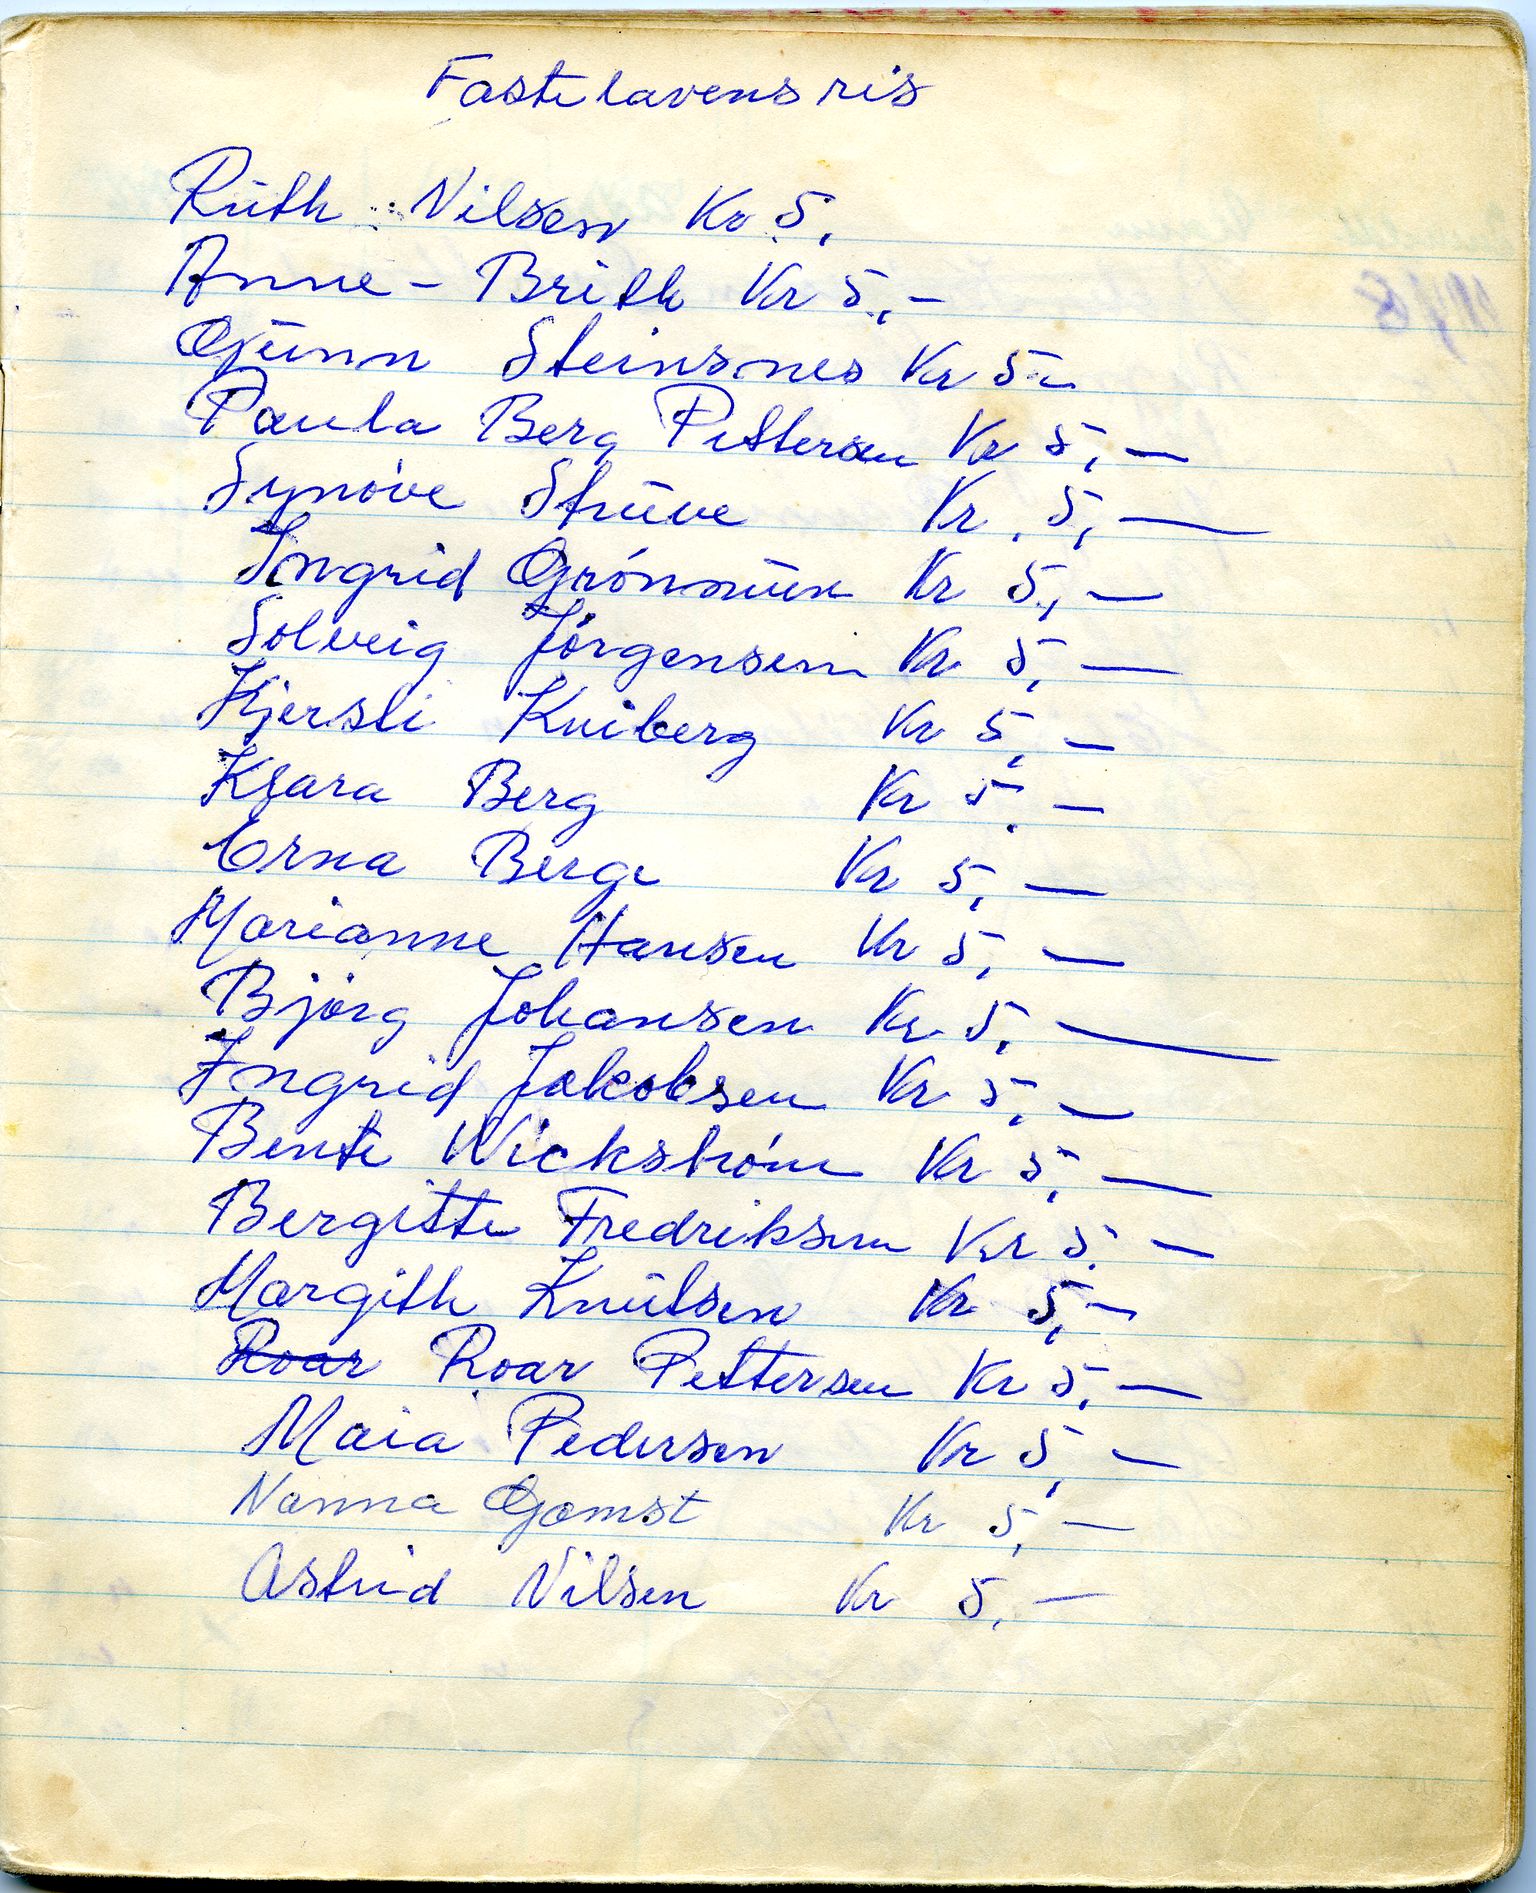 Fastelavensris
Ruth Nilsen Kr 5,
Anne-Brith Kr 5,-
Gunn Steinsnes Kr 5,-
Paula Berg Pettersen Kr 5,-
Synöve Strüve Kr 5,-
Ingrid Grönmüen Kr 5,-
Solveig Jörgensen Kr 5,-
Kjersti Kniberg Kr 5,-
Klara Berg Kr 5,-
Erna Berge Kr 5,-
Marianne Hansen Kr 5,-
Bjórg Johansen Kr 5,-
Ingrid Jakobsen Kr 5,-
Bente Wickstróm Kr 5,-
Bergitte Fredriksen Kr 5,-
Margith Knutsen Kr 5,-
Roar Roar Pettersen Kr 5,-
Maia Pedersen Kr 5,-
Nanna Gamst Kr 5,-
Astrid Nilsen Kr 5,-